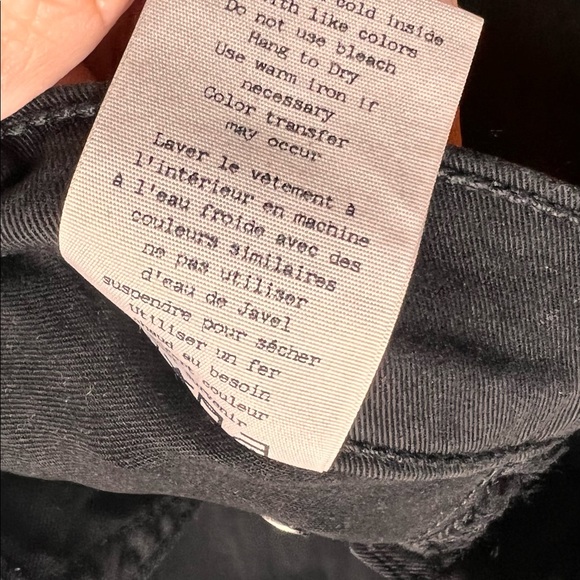 cold inside
with like colors
Do not use bleach
Hang to Dry
Use warm iron if
necessary
Color transfer
may occur
Laver le vêtement à
l'intérieur en machine
à l'eau froide avec des
couleurs similaires
ne pas utiliser
d'eau de Javel
suspendre pour sécher
utiliser un fer
chaud au besoin
couleur